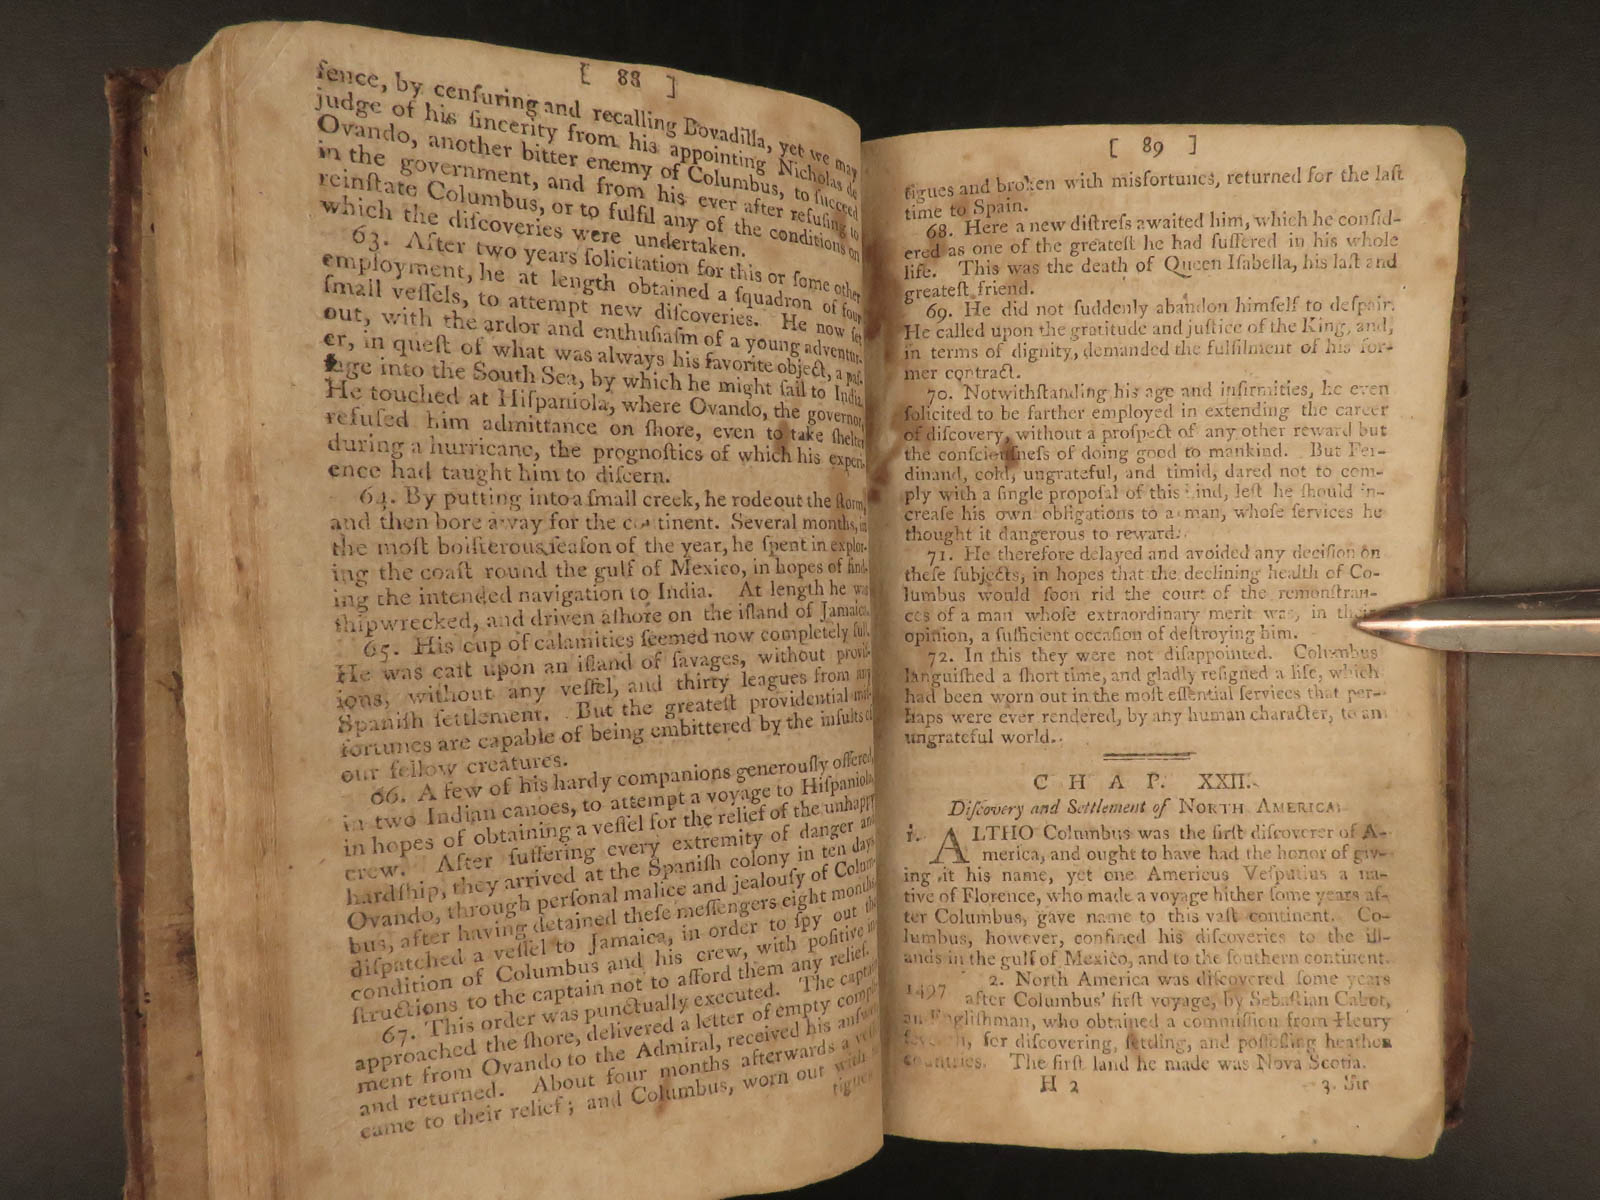 [ 88 ]
ſence, by cenſuring and recalling Bovadilla, yet we may
judge of his ſincerity from his appointing Nicholas de
Ovando, another bitter enemy of Columbus, to ſucceed
in the government, and from his ever after refuſing to
reinſtate Columbus, or to fulfil any of the conditions on
which the diſcoveries were undertaken.
63. After two years ſolicitation for this or ſome other
employment, he at length obtained a ſquadron of four
ſmall veſſels, to attempt new diſcoveries. He now ſet
out, with the ardor and enthuſiaſm of a young adventur-
er, in queſt of what was always his favorite object, a paſ-
ſage into the South Sea, by which he might ſail to India.
He touched at Hiſpaniola, where Ovando, the governor,
refuſed him admittance on ſhore, even to take ſhelter
during a hurricane, the prognoſtics of which his experi-
ence had taught him to diſcern.
64. By putting into a ſmall creek, he rode out the ſtorm,
and then bore away for the continent. Several months, in
the moſt boiſterous ſeaſon of the year, he ſpent in explor-
ing the coaſt round the gulf of Mexico, in hopes of find-
ing the intended navigation to India. At length he was
ſhipwrecked, and driven aſhore on the iſland of Jamaica.
65. His cup of calamities ſeemed now completely full.
He was caſt upon an iſland of ſavages, without proviſ-
ions, without any veſſel, and thirty leagues from any
Spaniſh ſettlement. But the greateſt providential miſ-
fortunes are capable of being embittered by the inſults of
our fellow creatures.
66. A few of his hardy companions generouſly offered,
in two Indian canoes, to attempt a voyage to Hiſpaniola,
in hopes of obtaining a veſſel for the relief of the unhappy
crew. After ſuffering every extremity of danger and
hardſhip, they arrived at the Spaniſh colony in ten days.
Ovando, through perſonal malice and jealouſy of Colum-
bus, after having detained theſe meſſengers eight months,
diſpatched a veſſel to Jamaica, in order to ſpy out the
condition of Columbus and his crew, with poſitive in-
ſtructions to the captain not to afford them any relief.
67. This order was punctually executed. The captain
approached the ſhore, delivered a letter of empty compli-
ment from Ovando to the Admiral, received his anſwer
and returned. About four months afterwards a veſſel
came to their relief; and Columbus, worn out with fa-
tigues
[ 89 ]
tigues and broken with misfortunes, returned for the laſt
time to Spain.
68. Here a new diſtreſs awaited him, which he conſid-
ered as one of the greateſt he had ſuffered in his whole
life. This was the death of Queen Iſabella, his laſt and
greateſt friend.
69. He did not ſuddenly abandon himſelf to deſpair.
He called upon the gratitude and juſtice of the King, and,
in terms of dignity, demanded the fulfilment of his for-
mer contract.
70. Notwithſtanding his age and infirmities, he even
ſolicited to be farther employed in extending the career
of diſcovery, without a proſpect of any other reward but
the conſciouſneſs of doing good to mankind. But Fer-
dinand, cold, ungrateful, and timid, dared not to com-
ply with a ſingle propoſal of this kind, leſt he ſhould in-
creaſe his own obligations to a man, whoſe ſervices he
thought it dangerous to reward.
71. He therefore delayed and avoided any deciſion on
theſe ſubjects, in hopes that the declining health of Co-
lumbus would ſoon rid the court of the remonſtran-
ces of a man whoſe extraordinary merit was, in their
opinion, a ſufficient occaſion of deſtroying him.
72. In this they were not diſappointed. Columbus
languiſhed a ſhort time, and gladly reſigned a life, which
had been worn out in the moſt eſſential ſervices that per-
haps were ever rendered, by any human character, to an
ungrateful world.
CHAP. XXII.
Diſcovery and Settlement of NORTH AMERICA.
1. ALTHO Columbus was the firſt diſcoverer of A-
merica, and ought to have had the honor of giv-
ing it his name, yet one Americus Veſputius a na-
tive of Florence, who made a voyage hither ſome years af-
ter Columbus, gave name to this vaſt continent. Co-
lumbus, however, confined his diſcoveries to the iſl-
ands in the gulf of Mexico, and to the ſouthern continent.
2. North America was diſcovered ſome years
1497 after Columbus' firſt voyage, by Sebaſtian Cabot,
an Engliſhman, who obtained a commiſſion from Henry
ſeventh, for diſcovering, ſettling, and poſſeſſing heathen
countries. The firſt land he made was Nova Scotia.
H 2 3. Sir